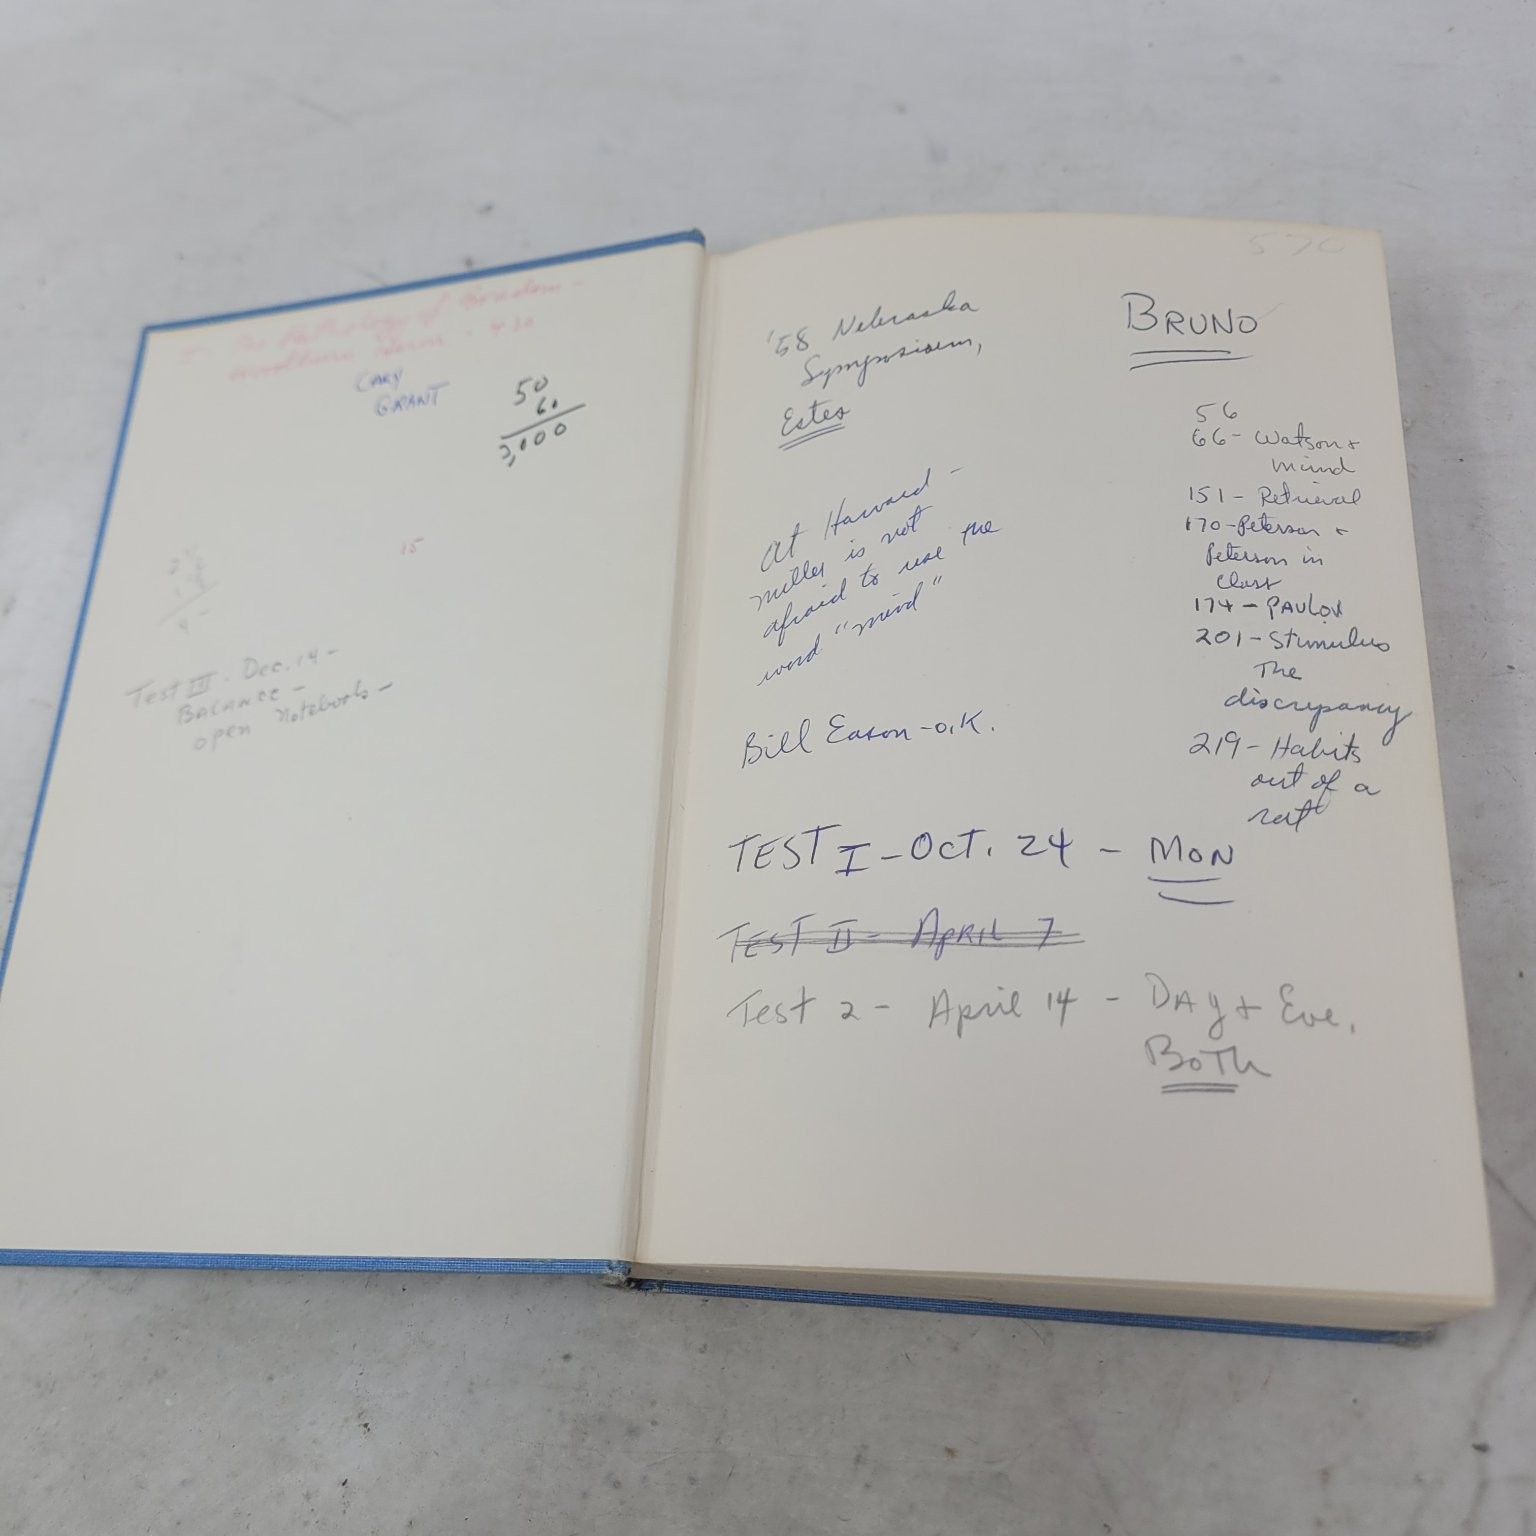 The Pathology of Boredom -
CARY
GRANT
50
60
3,000
15
Test III - Dec. 14 -
BALANCE -
open notebooks -
570
'58 Nebraska
Symposium,
Estes
BRUNO
At Harvard -
Miller is not
afraid to use the
word "mind"
Bill Eason - o.K.
56
66 - Watson +
mind
151 - Retrieval
170 - Peterson +
Peterson in
class
174 - PAVLOV
201 - Stimulus
The
discrepancy
219 - Habits
out of a
rat
TEST I - OCT. 24 - MON
TEST II - APRIL 7
Test 2 - April 14 - DAY + Eve.
BOTH